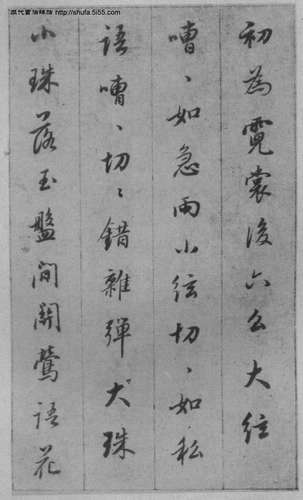 http://shufa.5i55.com
初為霓裳後六么大絃
嘈、如急雨小絃切、如私
語嘈、切、錯雜彈大珠
小珠落玉盤間關鶯語花